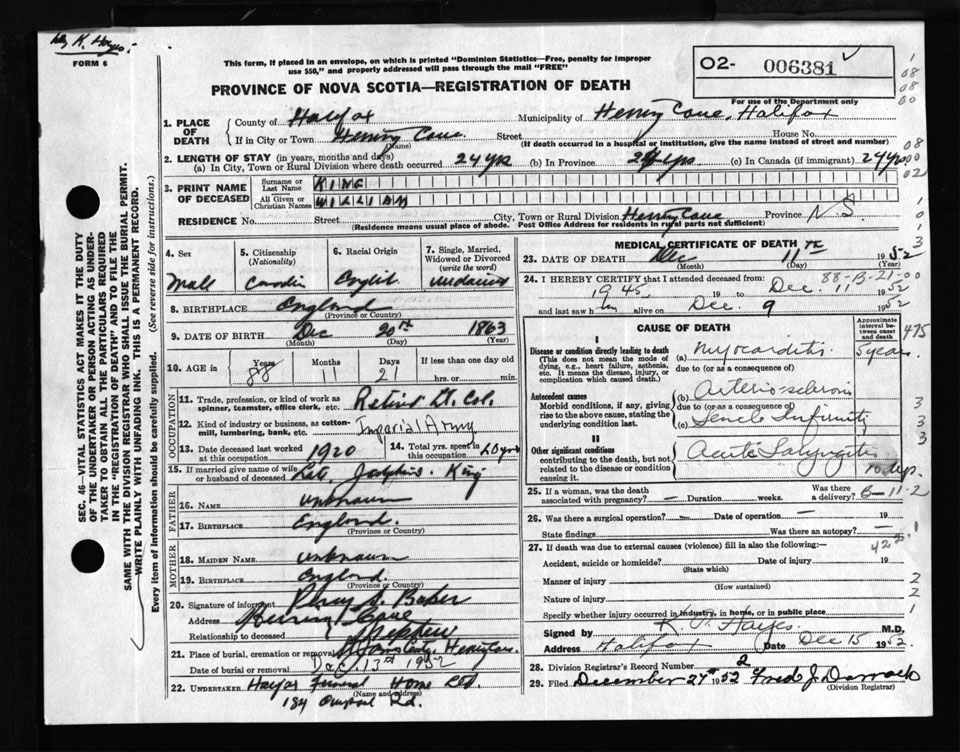 by K. Hayes.
FORM 6
This form, if placed in an envelope, on which is printed "Dominion Statistics—Free, penalty for improper
use $50," and properly addressed will pass through the mail "FREE"
02- 006381
PROVINCE OF NOVA SCOTIA—REGISTRATION OF DEATH
For use of the Department only
1. PLACE OF DEATH { County of Halifax Municipality of Henry Cove, Halifax
If in City or Town Henry Cove (Name) Street House No.
(If death occurred in a hospital or institution, give the name instead of street and number)
2. LENGTH OF STAY (in years, months and days)
(a) In City, Town or Rural Division where death occurred 24 yrs (b) In Province 24 yrs (c) In Canada (if immigrant) 24 yrs
3. PRINT NAME OF DECEASED { Surname or Last Name KING
All Given or Christian Names WILLIAM
RESIDENCE No. Street City, Town or Rural Division Henry Cove Province N.S.
(Residence means usual place of abode. Post Office Address for residents in rural parts not sufficient)
4. Sex
Male
5. Citizenship (Nationality)
6. Racial Origin
English
7. Single, Married, Widowed or Divorced (write the word)
8. BIRTHPLACE England
(Province or Country)
9. DATE OF BIRTH Dec 20th 1863
(Month) (Day) (Year)
10. AGE in { Years 88 Months 11 Days 21 If less than one day old hrs. or min.
OCCUPATION
11. Trade, profession, or kind of work as spinner, teamster, office clerk, etc. Retired Lt. Col.
12. Kind of industry or business, as cotton-mill, lumbering, bank, etc. Imperial Army
13. Date deceased last worked at this occupation 1920
14. Total yrs. spent in this occupation
15. If married give name of wife or husband of deceased King
FATHER
16. NAME unknown
17. BIRTHPLACE England.
(Province or Country)
MOTHER
18. MAIDEN NAME unknown
19. BIRTHPLACE England.
(Province or Country)
20. Signature of informant Percy S. Baker
Address
Relationship to deceased Stepson
21. Place of burial, cremation or removal
Date of burial or removal Dec. 13th 1952
22. UNDERTAKER Funeral Home Ltd.
(Name and address)
184 Rd.
MEDICAL CERTIFICATE OF DEATH
23. DATE OF DEATH Dec 11th 1952
(Month) (Day) (Year)
88-B-21-00
24. I HEREBY CERTIFY that I attended deceased from:
1945 19 to Dec. 11 1952
and last saw h im alive on Dec. 9 1952
CAUSE OF DEATH
Approximate interval between onset and death
I
Disease or condition directly leading to death (a) Myocarditis 5 years
(This does not mean the mode of dying, e.g., heart failure, asthenia, etc. It means the disease, injury, or complication which caused death.)
due to (or as a consequence of)
Antecedent causes (b) Arterio-sclerosis
Morbid conditions, if any, giving rise to the above cause, stating the underlying condition last.
due to (or as a consequence of)
(c) Senile Infirmity
II
Other significant conditions Acute Laryngitis 10 dys.
contributing to the death, but not related to the disease or condition causing it.
25. If a woman, was the death associated with pregnancy? — Duration weeks. Was there a delivery?
B-11-2
26. Was there a surgical operation? — Date of operation — 19
State findings Was there an autopsy? —
27. If death was due to external causes (violence) fill in also the following:—
Accident, suicide or homicide? Date of injury 19
(State which)
Manner of injury
(How sustained)
Nature of injury
Specify whether injury occurred in industry, in home, or in public place
Signed by K. P. Hayes M.D.
Address Halifax Date Dec 15 1952
28. Division Registrar's Record Number 2
29. Filed December 27th 1952 Fred J. Darrach
(Division Registrar)
SEC. 46—VITAL STATISTICS ACT MAKES IT THE DUTY
OF THE UNDERTAKER OR PERSON ACTING AS UNDER-
TAKER TO OBTAIN ALL THE PARTICULARS REQUIRED
IN THE "REGISTRATION OF DEATH" AND TO FILE THE
SAME WITH THE DIVISION REGISTRAR WHO SHALL ISSUE THE BURIAL PERMIT.
WRITE PLAINLY WITH UNFADING INK. THIS IS A PERMANENT RECORD.
Every item of Information should be carefully supplied. (See reverse side for instructions.)